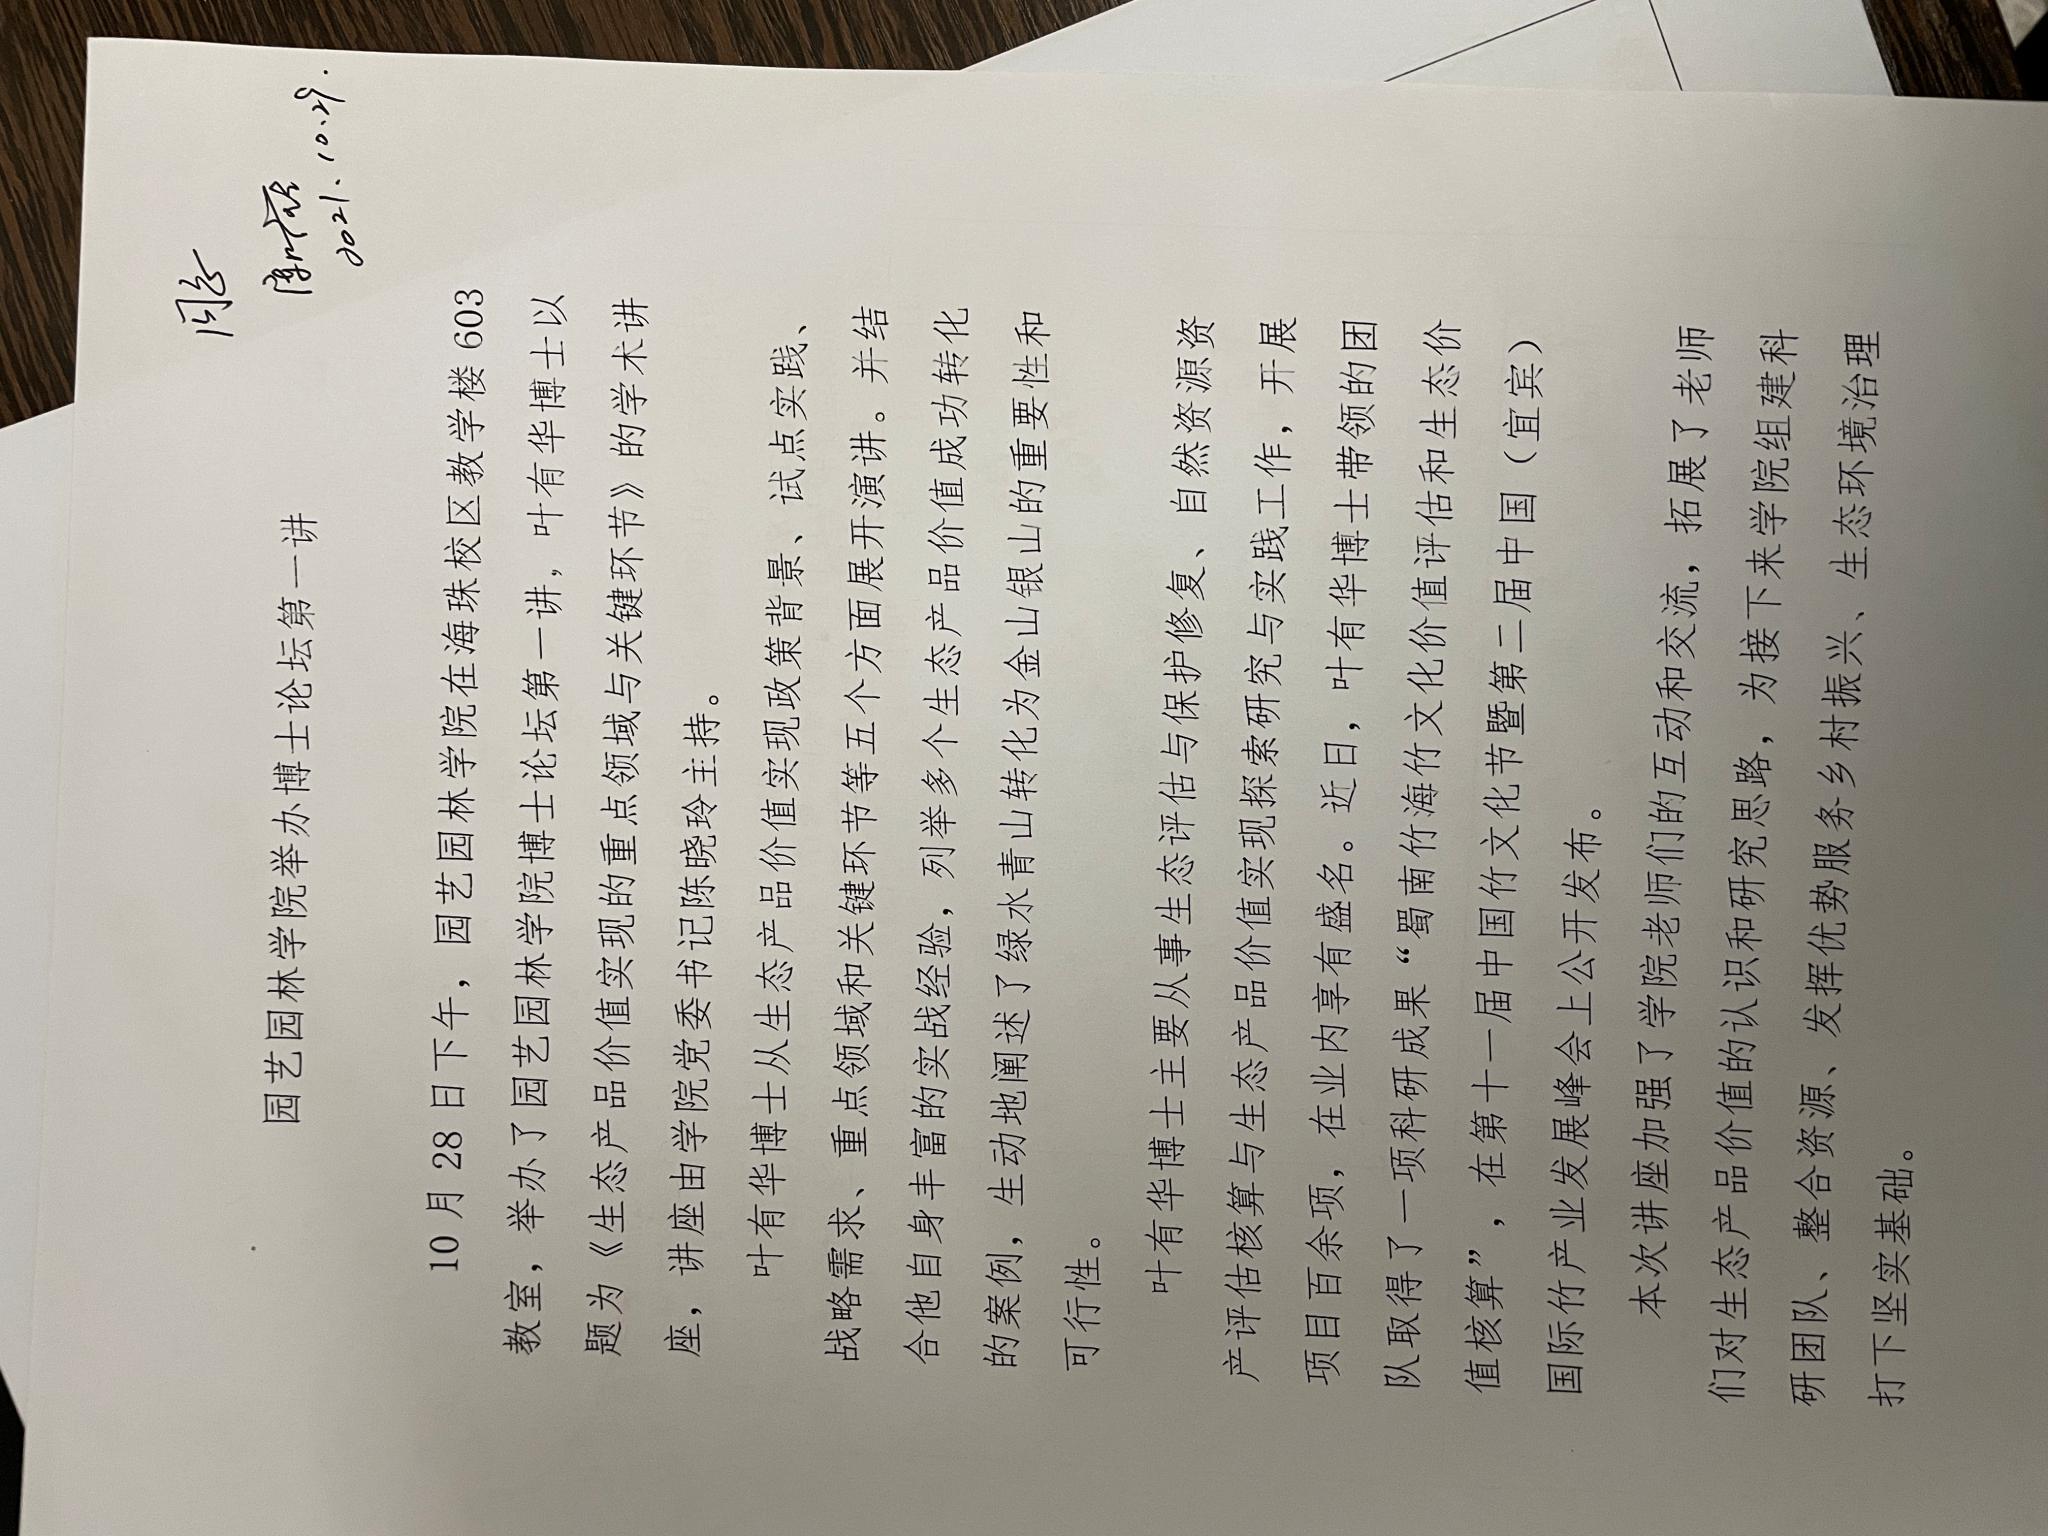 同意
2021.10.29.
园艺园林学院举办博士论坛第一讲
10 月 28 日下午，园艺园林学院在海珠校区教学楼 603
教室，举办了园艺园林学院博士论坛第一讲，叶有华博士以
题为《生态产品价值实现的重点领域与关键环节》的学术讲
座，讲座由学院党委书记陈晓玲主持。
叶有华博士从生态产品价值实现政策背景、试点实践、
战略需求、重点领域和关键环节等五个方面展开演讲。并结
合他自身丰富的实战经验，列举多个生态产品价值成功转化
的案例，生动地阐述了绿水青山转化为金山银山的重要性和
可行性。
叶有华博士主要从事生态评估与保护修复、自然资源资
产评估核算与生态产品价值实现探索研究与实践工作，开展
项目百余项，在业内享有盛名。近日，叶有华博士带领的团
队取得了一项科研成果“蜀南竹海竹文化价值评估和生态价
值核算”，在第十一届中国竹文化节暨第二届中国（宜宾）
国际竹产业发展峰会上公开发布。
本次讲座加强了学院老师们的互动和交流，拓展了老师
们对生态产品价值的认识和研究思路，为接下来学院组建科
研团队、整合资源、发挥优势服务乡村振兴、生态环境治理
打下坚实基础。